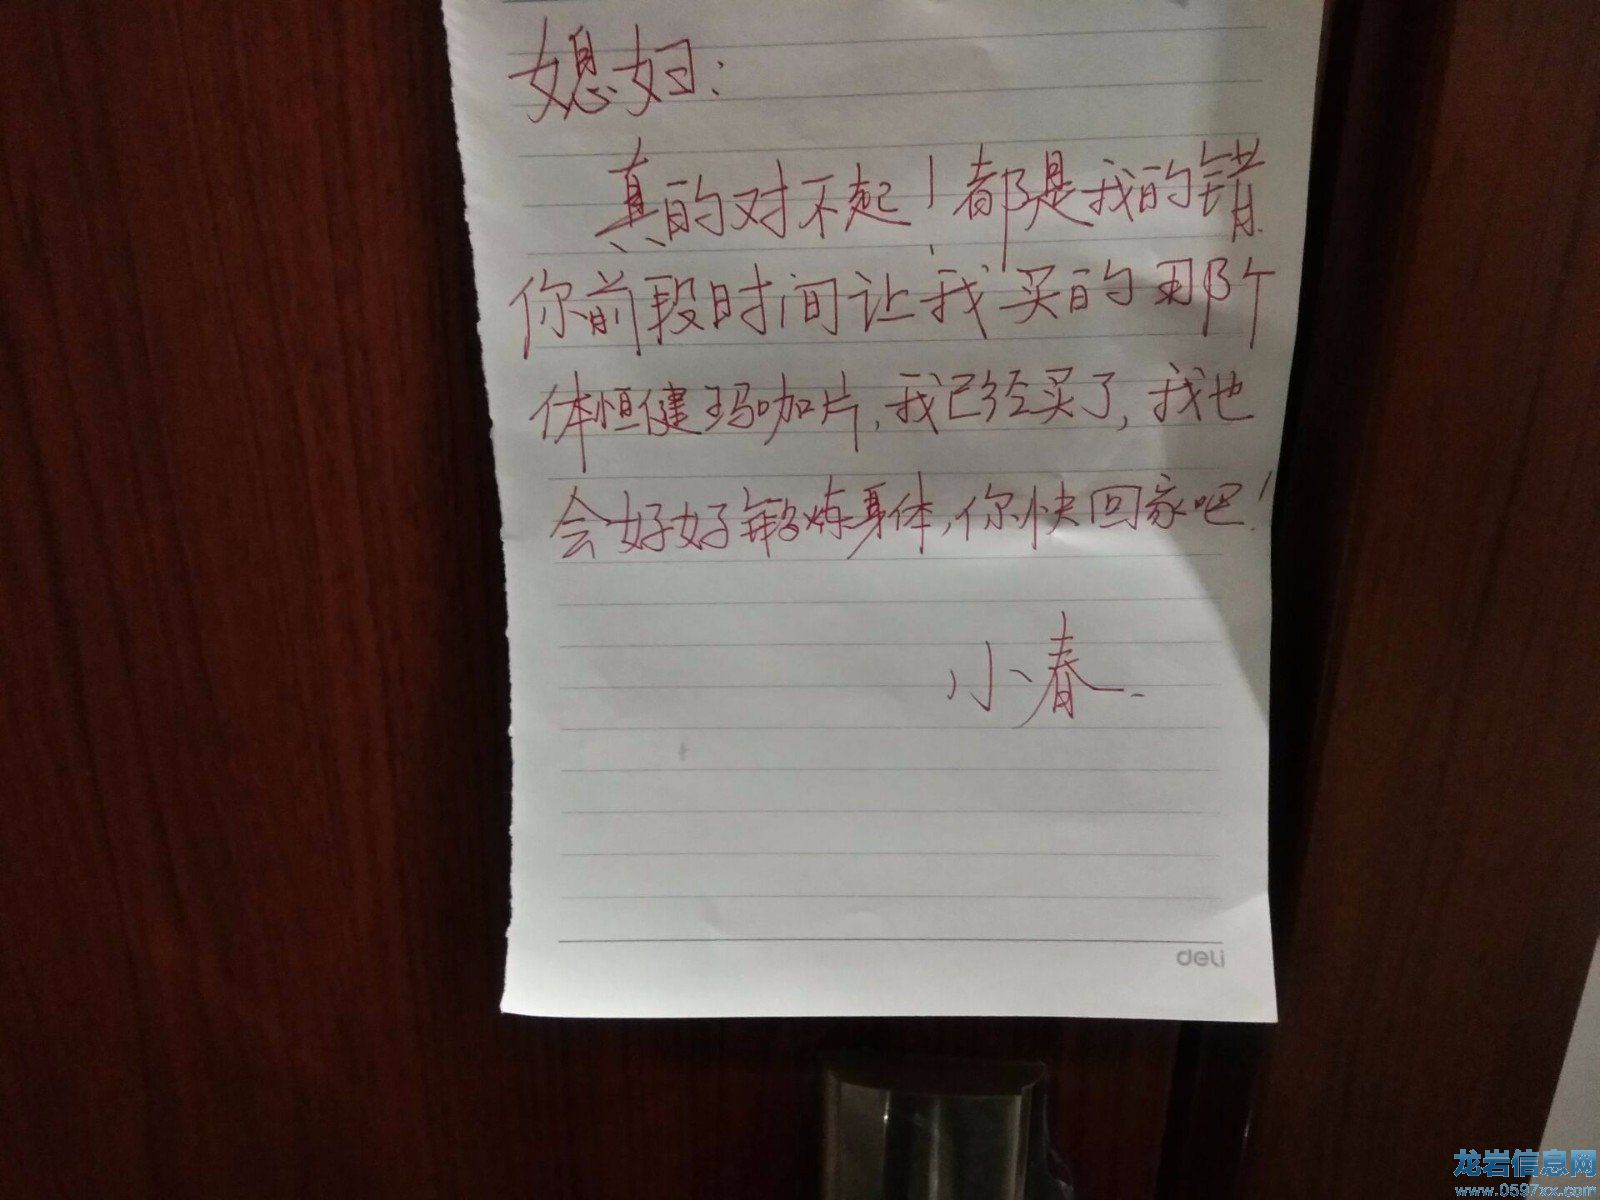 媳妇:
真的对不起!都是我的错.
你前段时间让我买的那个
体恒健玛咖片,我已经买了,我也
会好好锻炼身体,你快回家吧!
小春.
deli
龙岩信息网
www.0597xx.com